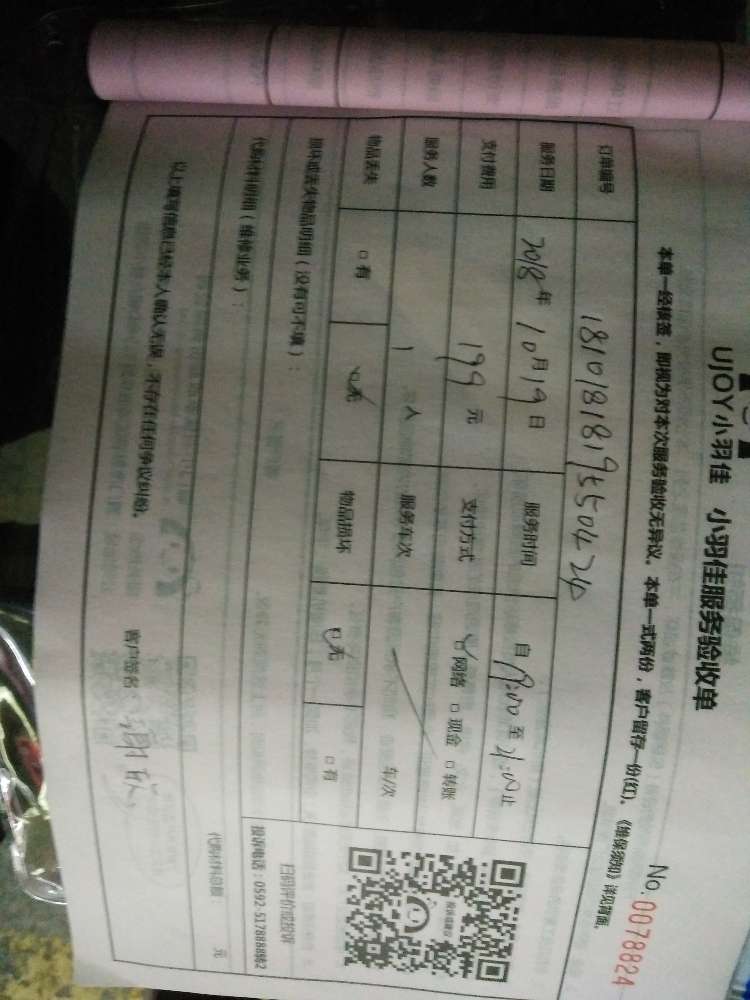 UJOY小羽佳 小羽佳服务验收单
No.0078824
本单一经核签，即视为对本次服务验收无异议。本单一式两份，客户留存一份(红)。《维保须知》详见背面。
订单编号
服务日期 2018年10月19日 服务时间 自 至 止
支付费用 199元 支付方式 网络 □现金 □转账
服务人数 1 人 服务车次 车/次
物品丢失 □有 □无 物品损坏 □无 □有
损坏或丢失物品明细（没有可不填）：
扫码评价或投诉
投诉电话：0592-5178888转2
代购材料明细（维修业务）：
代购材料总额： 元
以上填写信息已经本人确认无误，不存在任何争议纠纷。 客户签名：